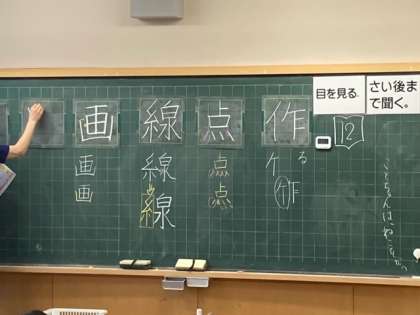 目を見る.
さい後ま
で聞く。
12
作
る
作
点
点
点
線
線
線
画
画
画